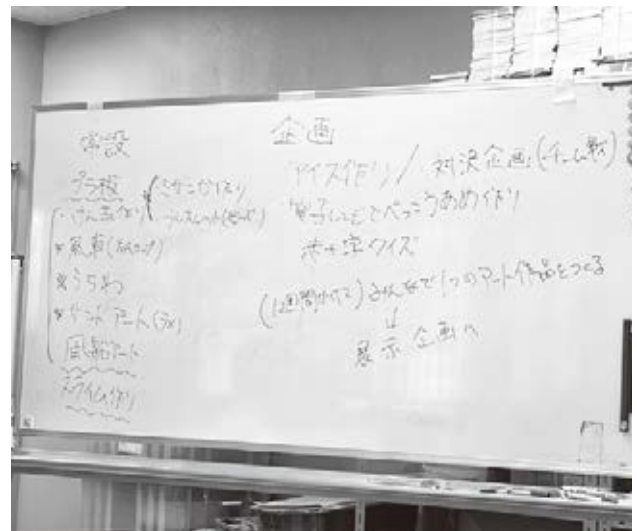 常設
プラ板
・けん玉作り
＊ミサンガ作り
ブレスレット(ビーズ)
＊風車
＊うちわ
＊サンドアート
風船アート
スライム作り
企画
アイス作り / 対決企画(チーム戦)
電子レンジでべっこうあめ作り
赤十字クイズ
(1週間かけて)みんなで1つのアート作品をつくる
↓
展示企画へ